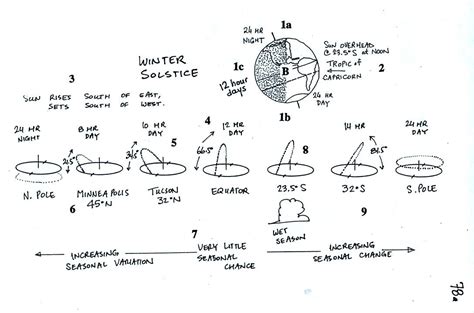 1a
24 HR
NIGHT
WINTER
SOLSTICE
SUN OVERHEAD
@ 23.5°S AT NOON
TROPIC OF
CAPRICORN
2
1c
12 hour
days
B
3
SUN RISES SOUTH OF EAST,
SETS SOUTH OF WEST.
24 HR
DAY
4
1b
24 HR
NIGHT
8 HR
DAY
10 HR
DAY
5
12 HR
DAY
14 HR
24 HR
DAY
21.5°
34.5°
66.5°
8
81.5°
N. POLE
MINNEAPOLIS
45°N
TUCSON
32°N
EQUATOR
23.5°S
32°S
S. POLE
6
9
WET
SEASON
7
INCREASING
SEASONAL VARIATION
VERY LITTLE
SEASONAL
CHANGE
INCREASING
SEASONAL CHANGE
78a